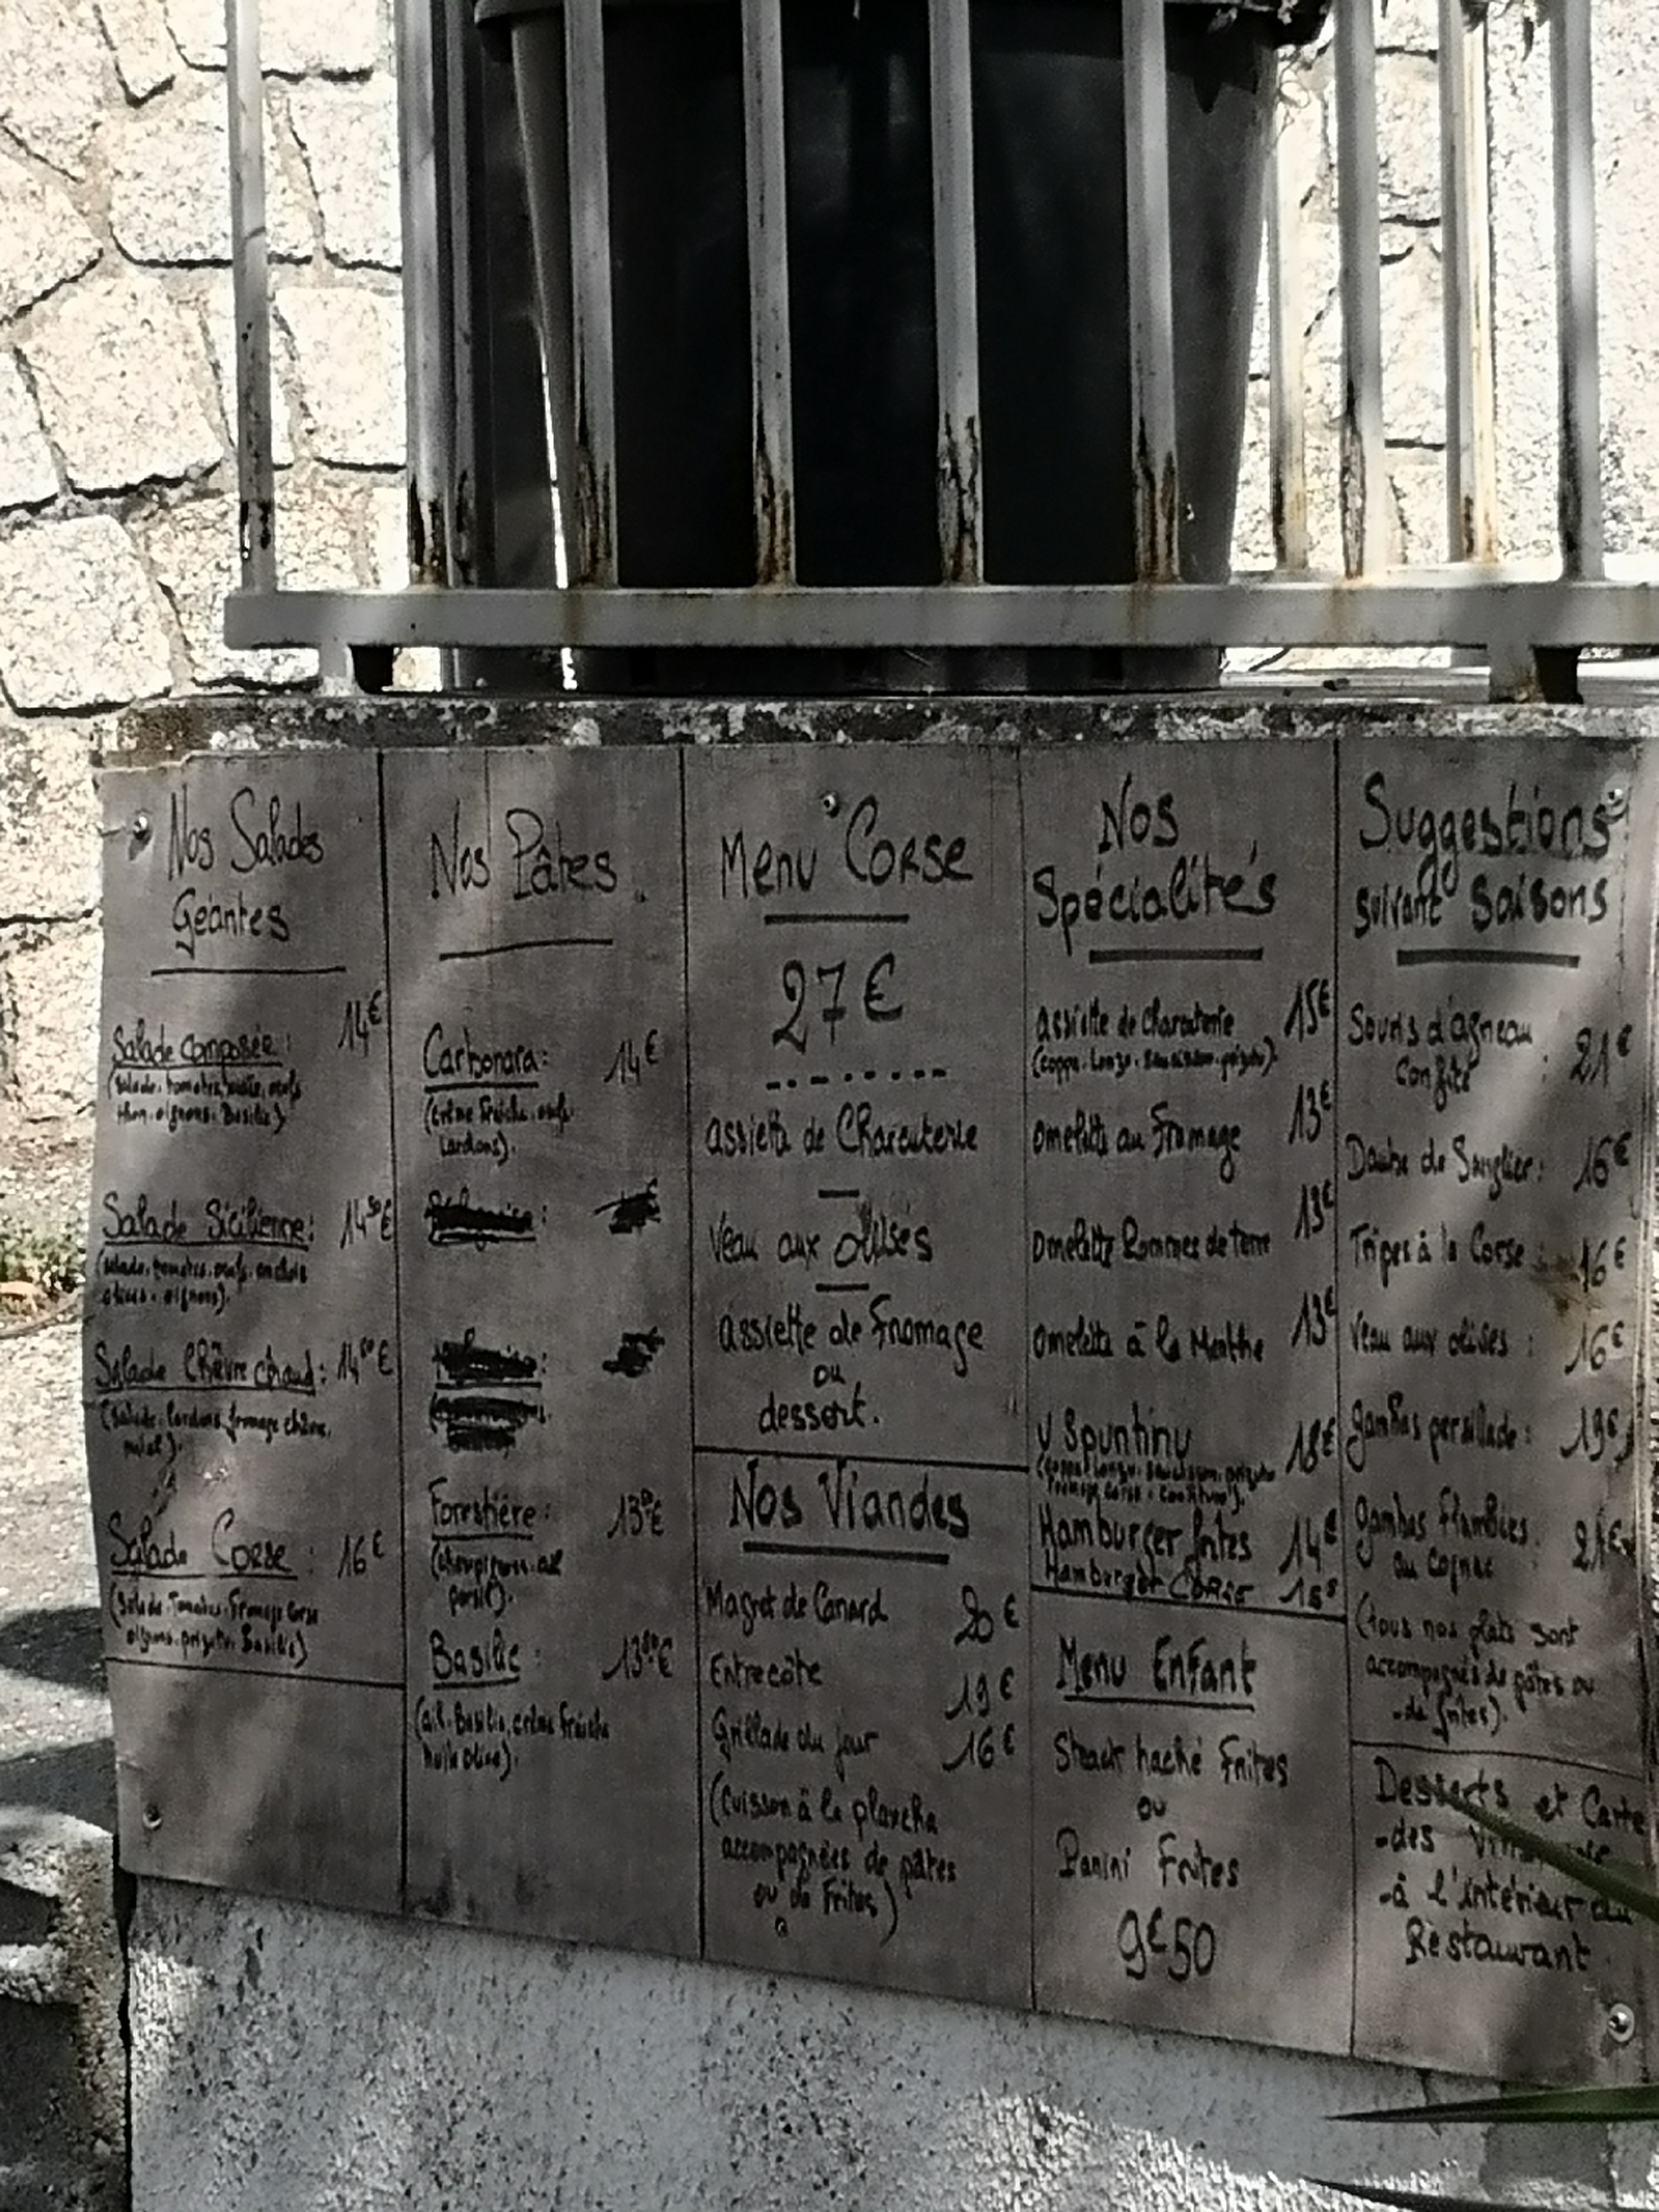 Nos Salades
Géantes
Salade composée : 14€
thon. oignons. Basilic)
Salade Sicilienne : 14 50 €
(salade. tomates. oeufs. anchois
olives. oignons).
Salade Chèvre chaud : 14 50 €
(salade. lardons, fromage chèvre,
Salade Corse : 16€
(Salade. Tomates. Fromage Corse
oignons. prizutu. Basilic)
Nos Pâtes
Carbonara : 14€
(crème Fraîche. oeufs.
Lardons).
Forestière : 13 €
(champignons. ail
persil).
Basilic : 13 50 €
(ail. Basilic, crème fraîche
huile olive).
Menu Corse
27€
assiette de Charcuterie
Veau aux olives
assiette de Fromage
ou
dessert.
Nos Viandes
Magret de Canard 20 €
Entrecôte 19 €
Grillade du jour 16 €
(Cuisson à la plancha
accompagnées de pâtes
ou de Frites)
Nos
Spécialités
assiette de Charcuterie 15€
(coppa. Lonzo. Saucisson. prizutu).
Omelette au Fromage 13€
Omelette Pommes de terre 13€
Omelette à la Menthe 13€
U Spuntinu 18€
(coppa. Lonzo. Saucisson. prizutu
Fromage Corse. Confiture).
Hamburger frites 14€
Hamburger CORSE
Menu Enfant
Steack haché Frites
ou
Panini Frites
9€50
Suggestions
suivant Saisons
Souris d'agneau
confite : 21€
Daube de Sanglier : 16€
Tripes à la Corse : 16€
Veau aux olives : 16€
Gambas persillade : 19€
Gambas Flambées
au Cognac 21€
(tous nos plats sont
accompagnés de pâtes ou
-de frites).
Desserts et Carte
-des
-à l'intérieur du
Restaurant